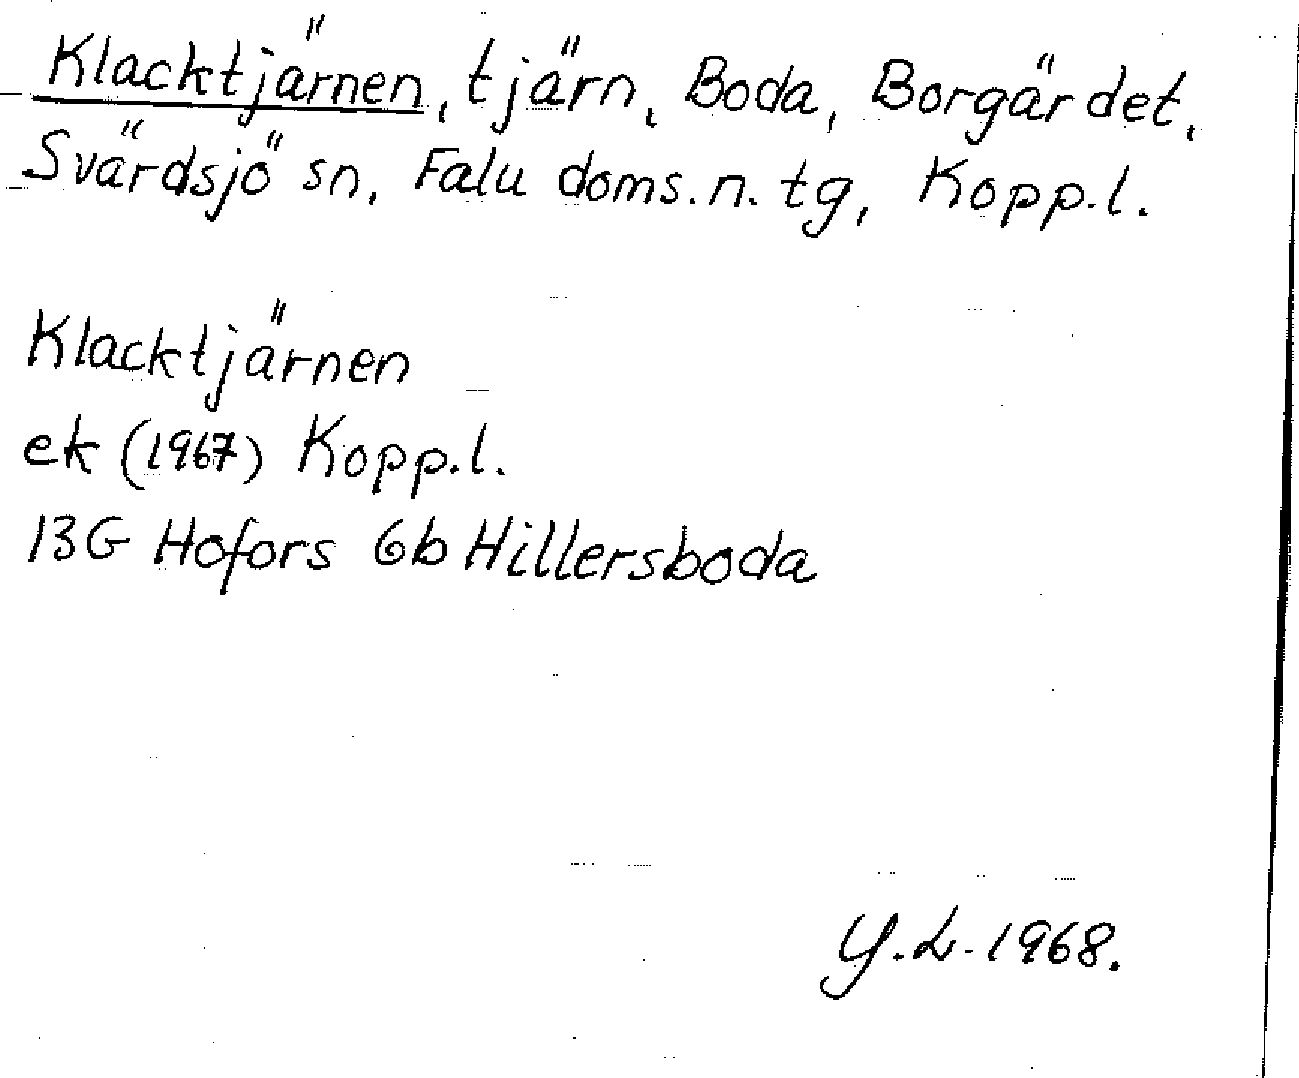 Klacktjärnen, tjärn, Boda, Borgärdet,
Svärdsjö sn, Falu doms.n. tg, Kopp.l.
Klacktjärnen
ek (1967) Kopp.l.
13G Hofors 6b Hillersboda
Y.L. 1968.